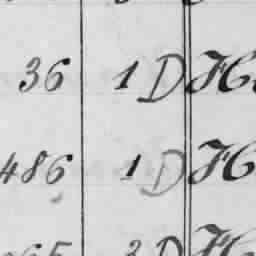 36 1 D H
486 1 D H
65 2 D H